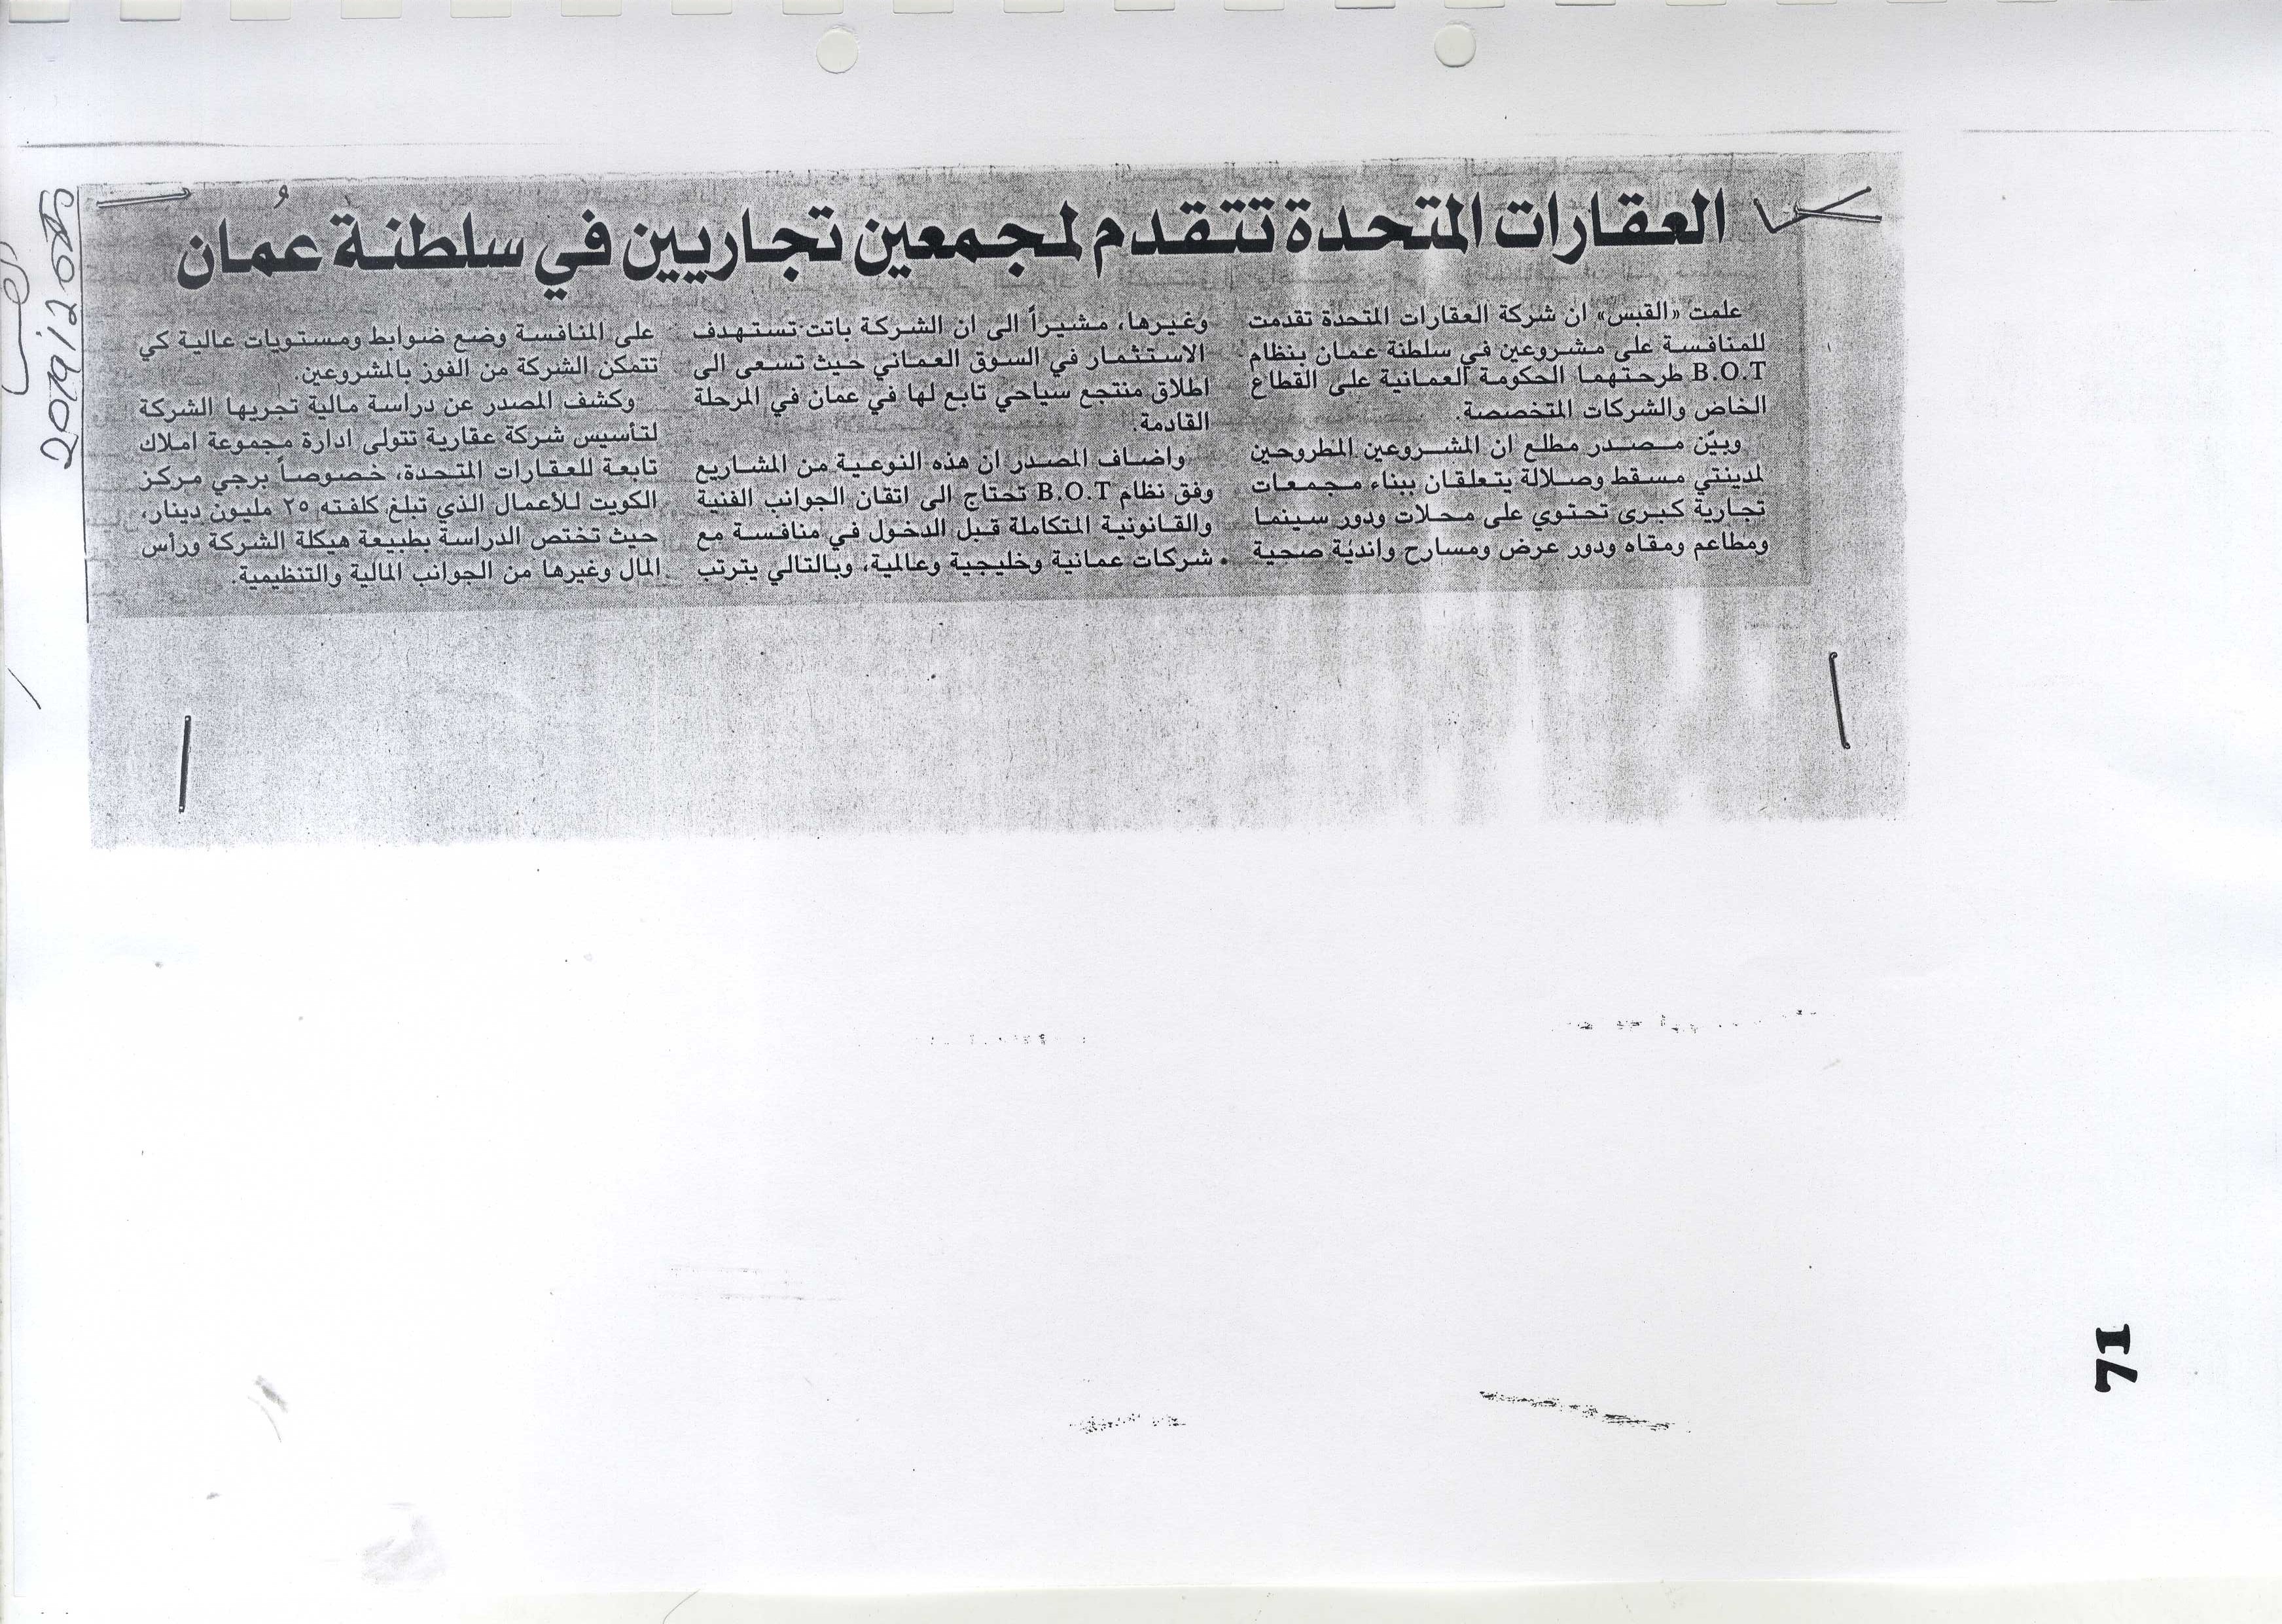 العقارات المتحدة تتقدم لمجمعين تجاريين في سلطنة عُمان
علمت «القبس» ان شركة العقارات المتحدة تقدمت
للمنافسة على مشروعين في سلطنة عمان بنظام
B.O.T طرحتهما الحكومة العمانية على القطاع
الخاص والشركات المتخصصة.
وبيّن مصدر مطلع ان المشروعين المطروحين
لمدينتي مسقط وصلالة يتعلقان ببناء مجمعات
تجارية كبرى تحتوي على محلات ودور سينما
ومطاعم ومقاه ودور عرض ومسارح واندية صحية
وغيرها، مشيراً الى ان الشركة باتت تستهدف
الاستثمار في السوق العماني حيث تسعى الى
اطلاق منتجع سياحي تابع لها في عمان في المرحلة
القادمة.
واضاف المصدر ان هذه النوعية من المشاريع
وفق نظام B.O.T تحتاج الى اتقان الجوانب الفنية
والقانونية المتكاملة قبل الدخول في منافسة مع
شركات عمانية وخليجية وعالمية، وبالتالي يترتب
على المنافسة وضع ضوابط ومستويات عالية كي
تتمكن الشركة من الفوز بالمشروعين.
وكشف المصدر عن دراسة مالية تجريها الشركة
لتأسيس شركة عقارية تتولى ادارة مجموعة املاك
تابعة للعقارات المتحدة، خصوصاً برجي مركز
الكويت للأعمال الذي تبلغ كلفته ٢٥ مليون دينار،
حيث تختص الدراسة بطبيعة هيكلة الشركة ورأس
المال وغيرها من الجوانب المالية والتنظيمية.
71